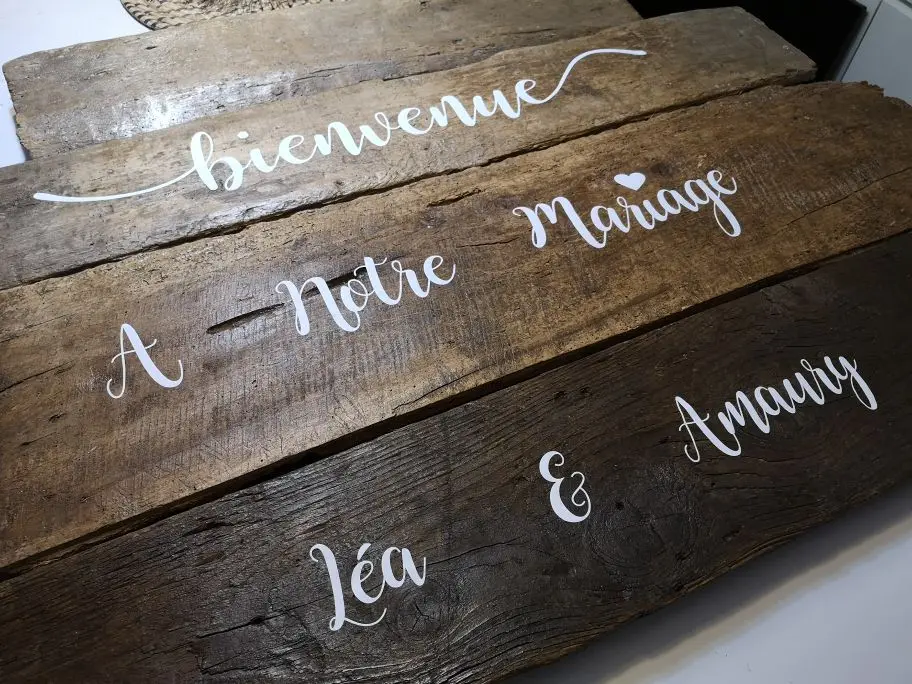 bienvenue
A Notre Mariage
Léa & Amaury